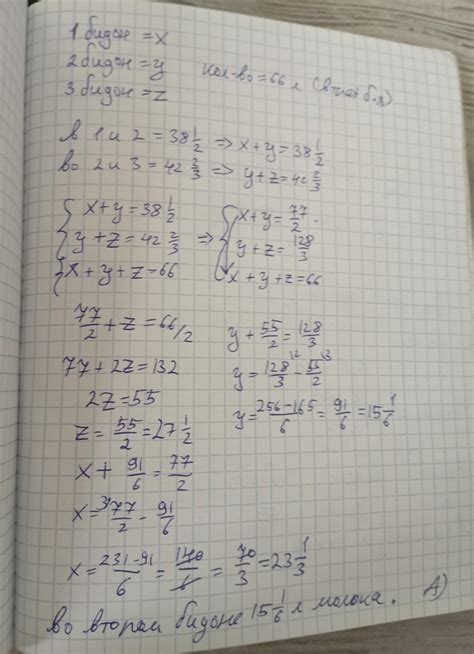 1 бидон = x
2 бидон = y кол-во = 66 л
3 бидон = z
в 1 и 2 = 38 1/2 => x+y = 38 1/2
во 2 и 3 = 42 2/3 => y+z = 42 2/3
{ x+y = 38 1/2 => { x+y = 77/2
y+z = 42 2/3 y+z = 128/3
x+y+z = 66 x+y+z = 66
77/2 + z = 66 /2
77+2z = 132
2z = 55
z = 55/2 = 27 1/2
x + 91/6 = 77/2
x = 77/2 - 91/6
x = 231-91/6 = 140/6 = 70/3 = 23 1/3
y + 55/2 = 128/3
y = 128/3 - 55/2
y = 256-165/6 = 91/6 = 15 1/6
во втором бидоне 15 1/6 л молока. А)